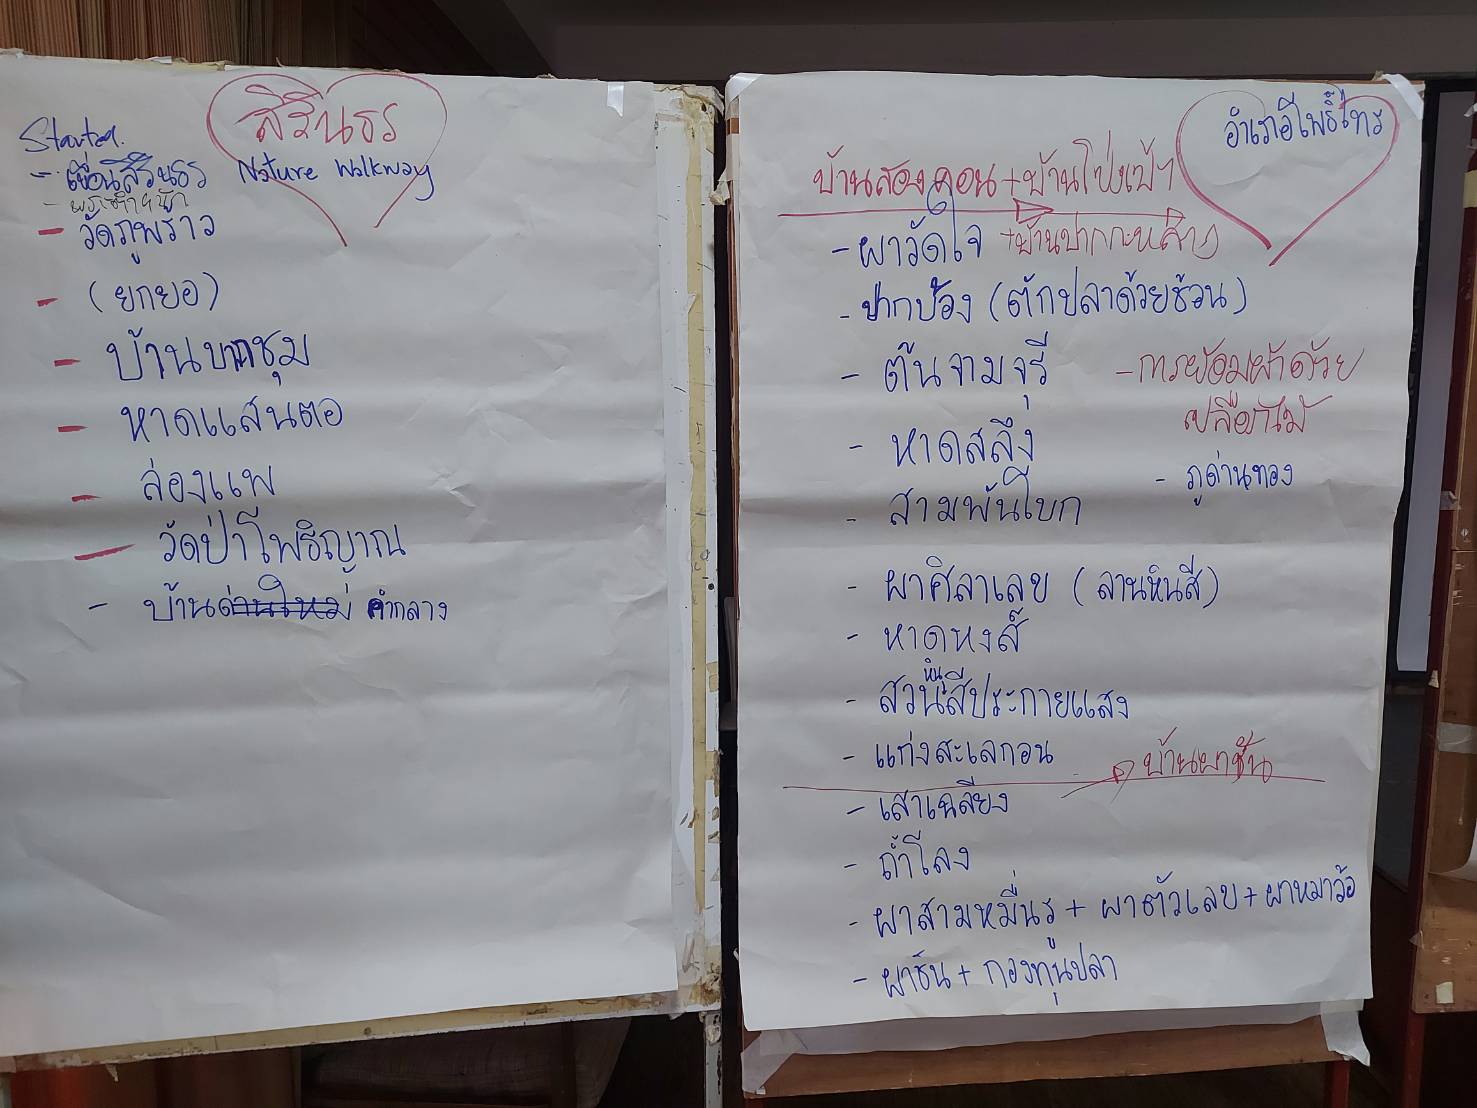 สิรินธร
Nature Walkway
Started.
- เขื่อนสิรินธร
- พระตำหนัก
- วัดภูพร้าว
- (ยกยอ)
- บ้านบากชุม
- หาดแสนตอ
- ล่องแพ
- วัดป่าโพธิญาณ
- บ้านด่านใหม่ คำกลาง
อำเภอโพธิ์ไทร
บ้านสองคอน + บ้านโป่งเป้า
- ผาวัดใจ + บ้านปากกะหลาง
- ปากบ้อง (ตักปลาด้วยช้อน)
- ต้นจามจุรี
- หาดสลึง
- สามพันโบก
- การย้อมผ้าด้วย
เปลือกไม้
- ภูด่านทอง
- ผาศิลาเลข (ลานหินสี)
- หาดหงส์
- สวนหินสีประกายแสง
- แก่งสะเลกอน
บ้านผาชัน
- เสาเฉลียง
- ถ้ำโลง
- ผาสามหมื่นรู + ผาตัวเลข + ผาหมาว้อ
- ผาชัน + กองทุนปลา